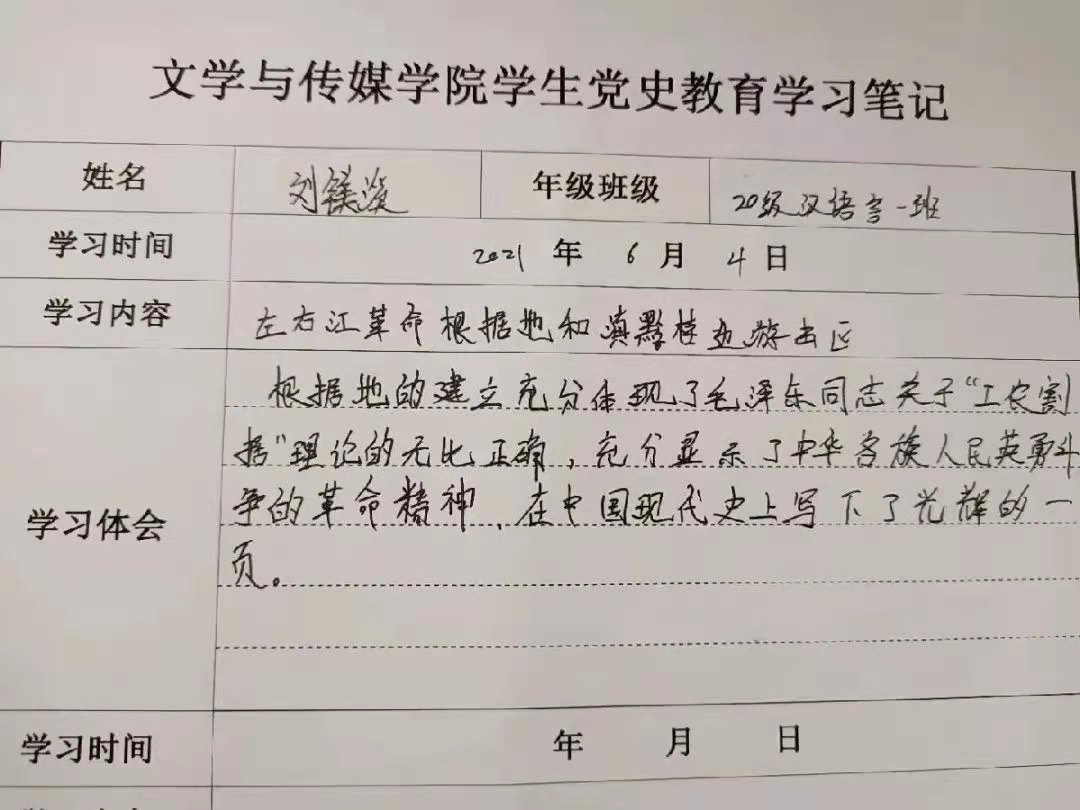 文学与传媒学院学生党史教育学习笔记
姓名 刘镁 年级班级 20级汉语言一班
学习时间 2021 年 6 月 4 日
学习内容 左右江革命根据地和滇黔桂边游击区
学习体会
根据地的建立充分体现了毛泽东同志关于“工农割
据”理论的无比正确,充分显示了中华各族人民英勇斗
争的革命精神,在中国现代史上写下了光辉的一
页。
学习时间 年 月 日